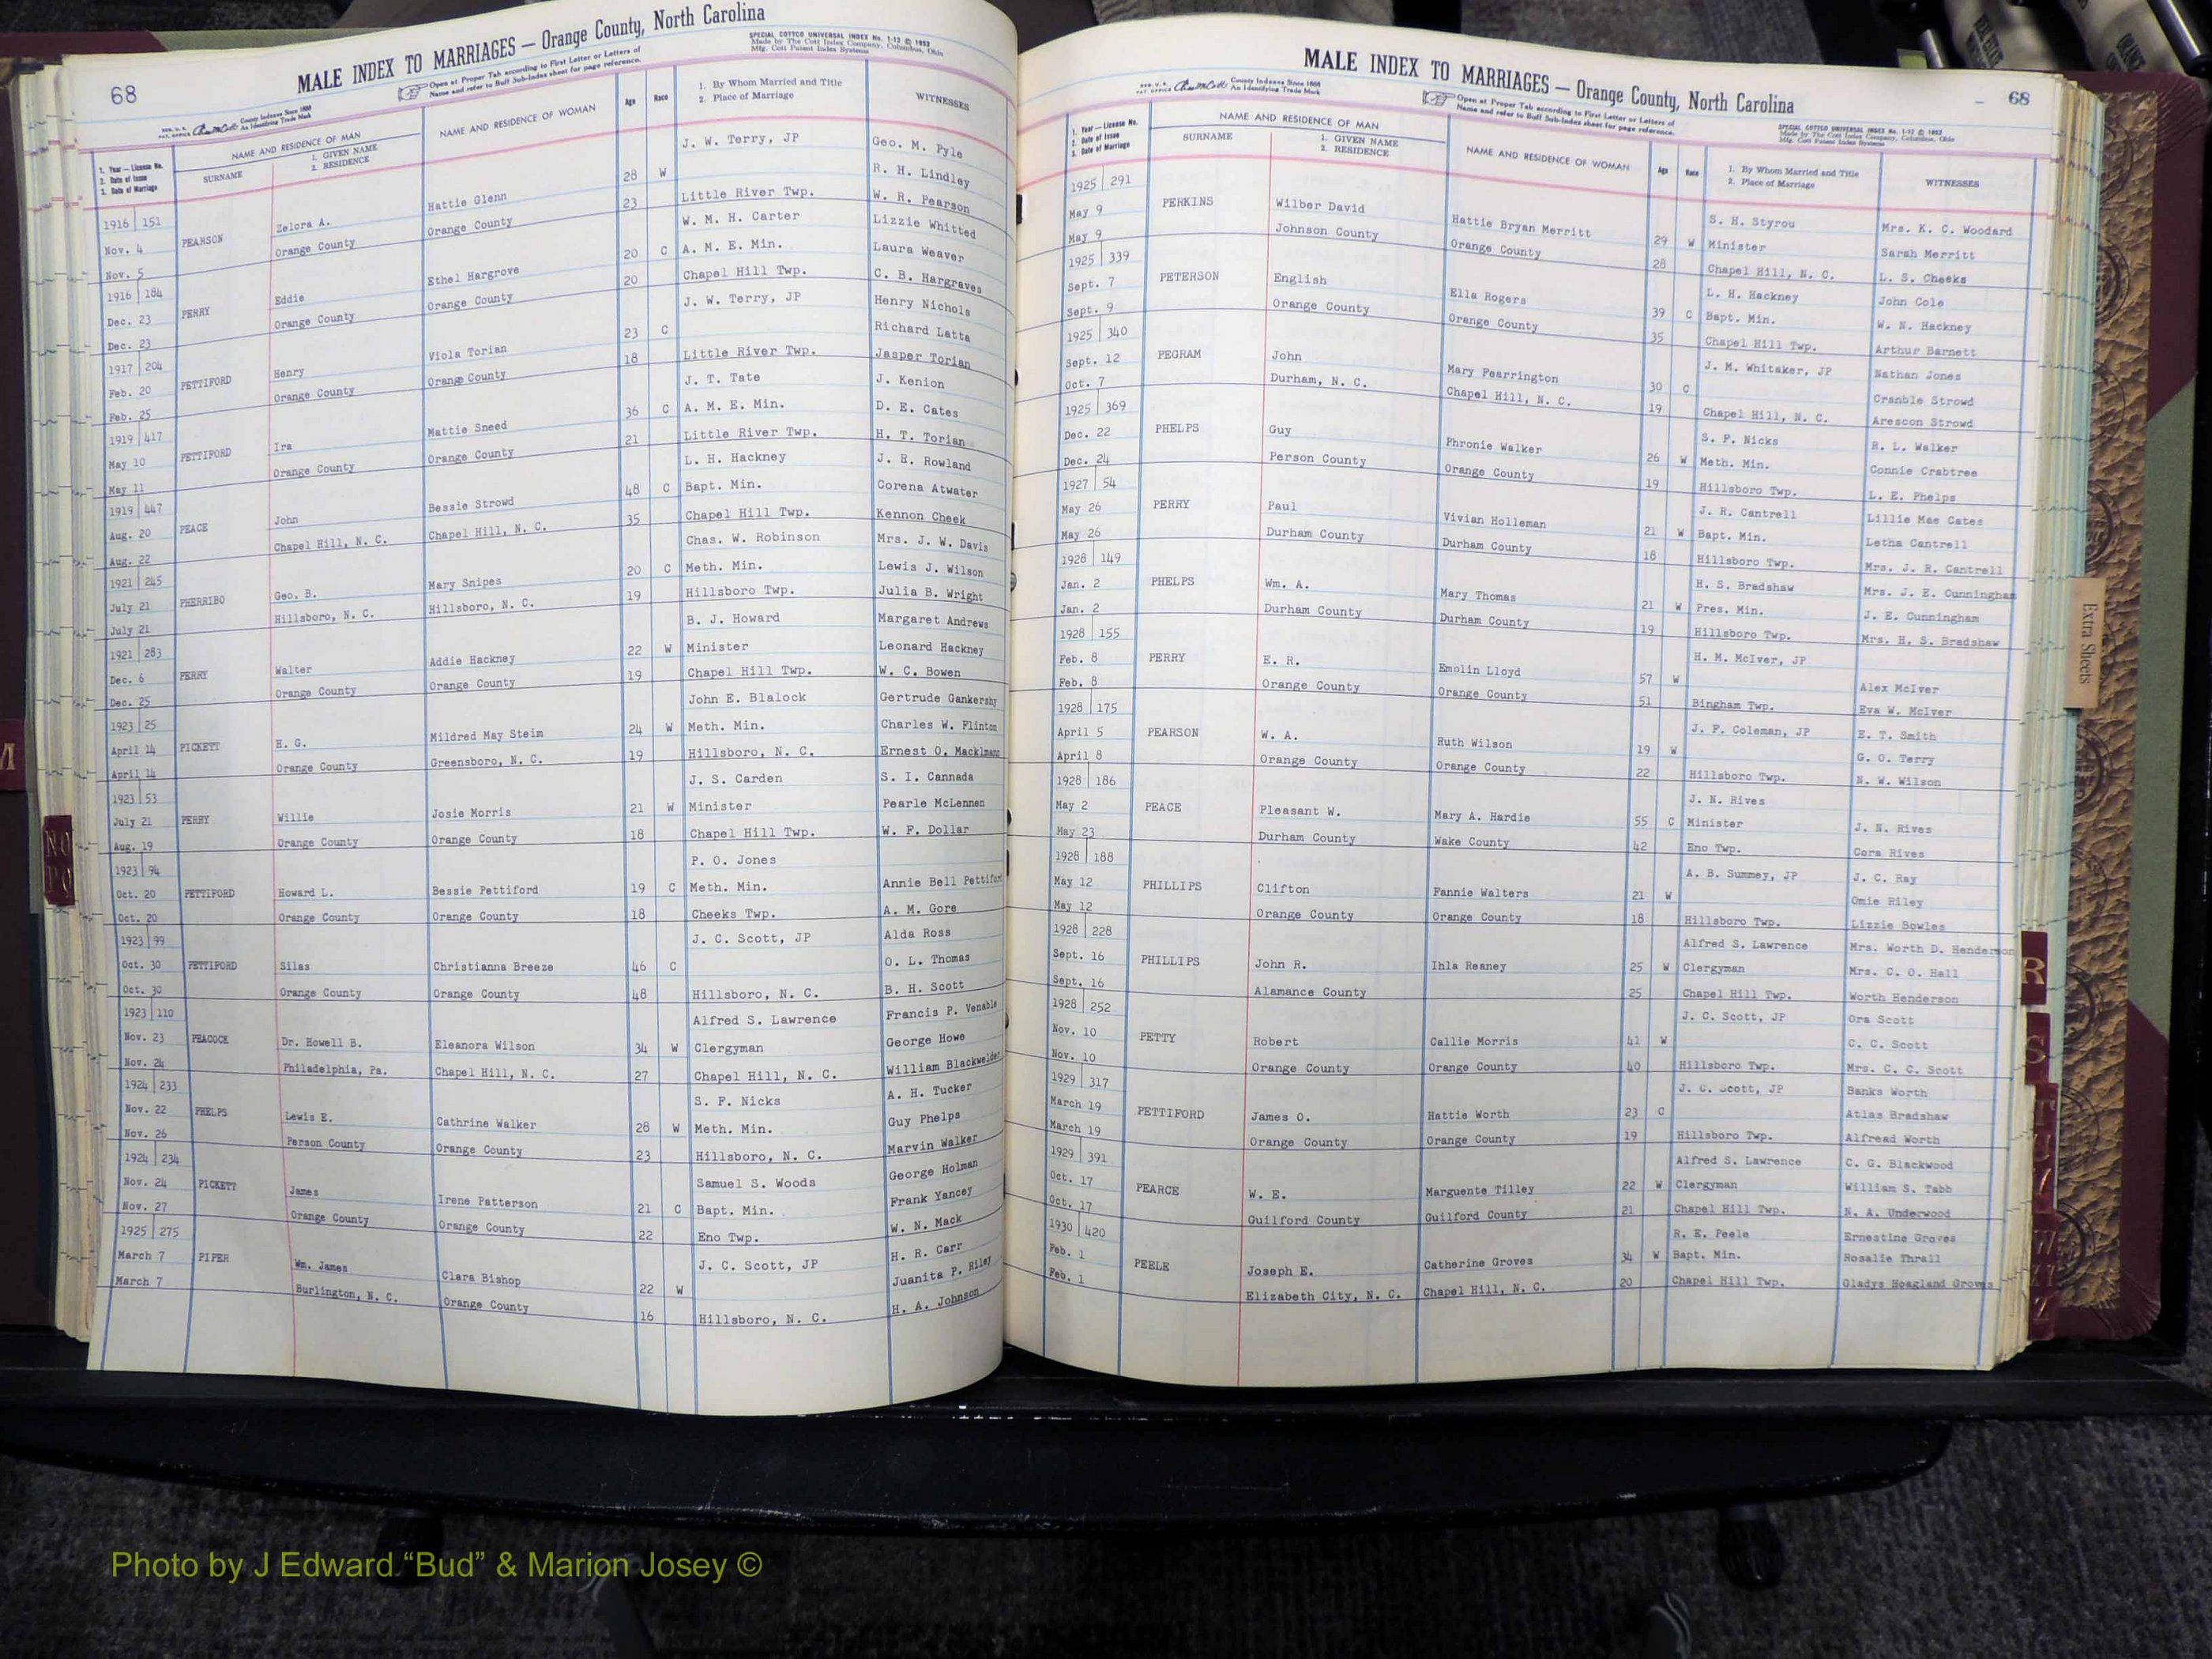 68
MALE INDEX TO MARRIAGES — Orange County, North Carolina
SPECIAL COTTCO UNIVERSAL INDEX No. 1-12 © 1952
Made by The Cott Index Company, Columbus, Ohio
Mfg. Cott Patent Index Systems
Open at Proper Tab according to First Letter or Letters of
Name and refer to Buff Sub-Index sheet for page reference.
County Indexes Since 1888
An Identifying Trade Mark
1. Year — License No.
2. Date of Issue
3. Date of Marriage
NAME AND RESIDENCE OF MAN
SURNAME
1. GIVEN NAME
2. RESIDENCE
NAME AND RESIDENCE OF WOMAN
Age
Race
1. By Whom Married and Title
2. Place of Marriage
WITNESSES
1916 151 J. W. Terry, JP Geo. M. Pyle
Nov. 4 PEARSON Zelora A. Hattie Glenn 28 W R. H. Lindley
Nov. 5 Orange County Orange County 23 Little River Twp. W. R. Pearson
1916 184 W. M. H. Carter Lizzie Whitted
Dec. 23 PERRY Eddie Ethel Hargrove 20 C A. M. E. Min. Laura Weaver
Dec. 23 Orange County Orange County 20 Chapel Hill Twp. C. B. Hargraves
1917 204 J. W. Terry, JP Henry Nichols
Feb. 20 PETTIFORD Henry Viola Torian 23 C Richard Latta
Feb. 25 Orange County Orange County 18 Little River Twp. Jasper Torian
1919 417 J. T. Tate J. Kenion
May 10 PETTIFORD Ira Mattie Sneed 36 C A. M. E. Min. D. E. Cates
May 11 Orange County Orange County 21 Little River Twp. H. T. Torian
1919 447 L. H. Hackney J. E. Rowland
Aug. 20 PEACE John Bessie Strowd 48 C Bapt. Min. Corena Atwater
Aug. 22 Chapel Hill, N. C. Chapel Hill, N. C. 35 Chapel Hill Twp. Kennon Cheek
1921 245 Chas. W. Robinson Mrs. J. W. Davis
July 21 PHERRIBO Geo. B. Mary Snipes 20 C Meth. Min. Lewis J. Wilson
July 21 Hillsboro, N. C. Hillsboro, N. C. 19 Hillsboro Twp. Julia B. Wright
1921 283 B. J. Howard Margaret Andrews
Dec. 6 PERRY Walter Addie Hackney 22 W Minister Leonard Hackney
Dec. 25 Orange County Orange County 19 Chapel Hill Twp. W. C. Bowen
1923 25 John E. Blalock Gertrude Gankersby
April 14 PICKETT H. G. Mildred May Steim 24 W Meth. Min. Charles W. Flinton
April 14 Orange County Greensboro, N. C. 19 Hillsboro, N. C. Ernest O.
1923 53 J. S. Carden S. I. Cannada
July 21 PERRY Willie Josie Morris 21 W Minister Pearle McLennen
Aug. 19 Orange County Orange County 18 Chapel Hill Twp. W. F. Dollar
1923 94 P. O. Jones
Oct. 20 PETTIFORD Howard L. Bessie Pettiford 19 C Meth. Min. Annie Bell Pettiford
Oct. 20 Orange County Orange County 18 Cheeks Twp. A. M. Gore
1923 99 J. C. Scott, JP Alda Ross
Oct. 30 PETTIFORD Silas Christianna Breeze 46 C O. L. Thomas
Oct. 30 Orange County Orange County 48 Hillsboro, N. C. B. H. Scott
1923 110 Alfred S. Lawrence Francis P. Venable
Nov. 23 PEACOCK Dr. Howell B. Eleanora Wilson 34 W Clergyman George Howe
Nov. 24 Philadelphia, Pa. Chapel Hill, N. C. 27 Chapel Hill, N. C. William Blackwelder
1924 233 S. F. Nicks A. H. Tucker
Nov. 22 PHELPS Lewis E. Cathrine Walker 28 W Meth. Min. Guy Phelps
Nov. 26 Person County Orange County 23 Hillsboro, N. C. Marvin Walker
1924 234 Samuel S. Woods George Holman
Nov. 24 PICKETT James Irene Patterson 21 C Bapt. Min. Frank Yancey
Nov. 27 Orange County Orange County 22 Eno Twp. W. N. Mack
1925 275 J. C. Scott, JP H. R. Carr
March 7 PIPER Wm. James Clara Bishop 22 W Juanita P. Riley
March 7 Burlington, N. C. Orange County 16 Hillsboro, N. C. H. A. Johnson
MALE INDEX TO MARRIAGES — Orange County, North Carolina
68
County Indexes Since 1888
An Identifying Trade Mark
Open at Proper Tab according to First Letter or Letters of
Name and refer to Buff Sub-Index sheet for page reference.
SPECIAL COTTCO UNIVERSAL INDEX No. 1-12 © 1952
Made by The Cott Index Company, Columbus, Ohio
Mfg. Cott Patent Index Systems
1. Year — License No.
2. Date of Issue
3. Date of Marriage
NAME AND RESIDENCE OF MAN
SURNAME
1. GIVEN NAME
2. RESIDENCE
NAME AND RESIDENCE OF WOMAN
Age
Race
1. By Whom Married and Title
2. Place of Marriage
WITNESSES
1925 291 S. H. Styrou Mrs. K. C. Woodard
May 9 PERKINS Wilber David Hattie Bryan Merritt 29 W Minister Sarah Merritt
May 9 Johnson County Orange County 28 Chapel Hill, N. C. L. S. Cheeks
1925 339 L. H. Hackney John Cole
Sept. 7 PETERSON English Ella Rogers 39 C Bapt. Min. W. N. Hackney
Sept. 9 Orange County Orange County 35 Chapel Hill Twp. Arthur Barnett
1925 340 J. M. Whitaker, JP Nathan Jones
Sept. 12 PEGRAM John Mary Pearrington 30 C Cranble Strowd
Oct. 7 Durham, N. C. Chapel Hill, N. C. 19 Chapel Hill, N. C. Arescon Strowd
1925 369 S. F. Nicks R. L. Walker
Dec. 22 PHELPS Guy Phronie Walker 26 W Meth. Min. Connie Crabtree
Dec. 24 Person County Orange County 19 Hillsboro Twp. L. E. Phelps
1927 54 J. R. Cantrell Lillie Mae Cates
May 26 PERRY Paul Vivian Holleman 21 W Bapt. Min. Letha Cantrell
May 26 Durham County Durham County 18 Hillsboro Twp. Mrs. J. R. Cantrell
1928 149 H. S. Bradshaw Mrs. J. E. Cunningham
Jan. 2 PHELPS Wm. A. Mary Thomas 21 W Pres. Min. J. E. Cunningham
Jan. 2 Durham County Durham County 19 Hillsboro Twp. Mrs. H. S. Bradshaw
1928 155 H. M. McIver, JP
Feb. 8 PERRY E. R. Emolin Lloyd 57 W Alex McIver
Feb. 8 Orange County Orange County 51 Bingham Twp. Eva W. McIver
1928 175 J. F. Coleman, JP E. T. Smith
April 5 PEARSON W. A. Ruth Wilson 19 W G. O. Terry
April 8 Orange County Orange County 22 Hillsboro Twp. N. W. Wilson
1928 186 J. N. Rives
May 2 PEACE Pleasant W. Mary A. Hardie 55 C Minister J. N. Rives
May 23 Durham County Wake County 42 Eno Twp. Cora Rives
1928 188 A. B. Summey, JP J. C. Ray
May 12 PHILLIPS Clifton Fannie Walters 21 W Omie Riley
May 12 Orange County Orange County 18 Hillsboro Twp. Lizzie Bowles
1928 228 Alfred S. Lawrence Mrs. Worth D. Henderson
Sept. 16 PHILLIPS John R. Ihla Reaney 25 W Clergyman Mrs. C. O. Hall
Sept. 16 Alamance County 25 Chapel Hill Twp. Worth Henderson
1928 252 J. C. Scott, JP Ora Scott
Nov. 10 PETTY Robert Callie Morris 41 W C. C. Scott
Nov. 10 Orange County Orange County 40 Hillsboro Twp. Mrs. C. C. Scott
1929 317 J. C. Scott, JP Banks Worth
March 19 PETTIFORD James O. Hattie Worth 23 C Atlas Bradshaw
March 19 Orange County Orange County 19 Hillsboro Twp. Alfread Worth
1929 391 Alfred S. Lawrence C. G. Blackwood
Oct. 17 PEARCE W. E. Marguente Tilley 22 W Clergyman William S. Tabb
Oct. 17 Guilford County Guilford County 21 Chapel Hill Twp. N. A. Underwood
1930 420 R. E. Peele Ernestine Groves
Feb. 1 PEELE Joseph E. Catherine Groves 34 W Bapt. Min. Rosalie Thrall
Feb. 1 Elizabeth City, N. C. Chapel Hill, N. C. 20 Chapel Hill Twp. Gladys Hoagland Groves
Extra Sheets
NO
PQ
R
S
T
U
Photo by J Edward "Bud" & Marion Josey ©